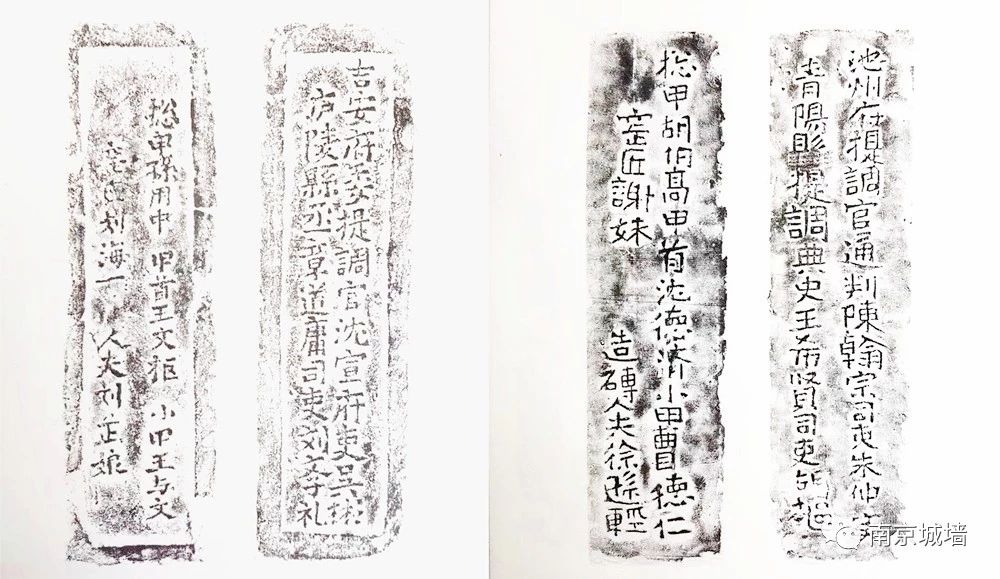 池州府提調官通判陳翰宗司吏朱仲
青陽縣提調典史王希賢司吏
捴甲胡伯高甲首沈德济小甲曹德仁
窑匠謝妹 造磚人夫徐
吉安府委提調官沈宣府吏吳彬
庐陵縣丞章道庸司吏刘季礼
捴甲孫用中 甲首王文 小甲王与文
窑匠刘海一 人夫刘
南京城墙